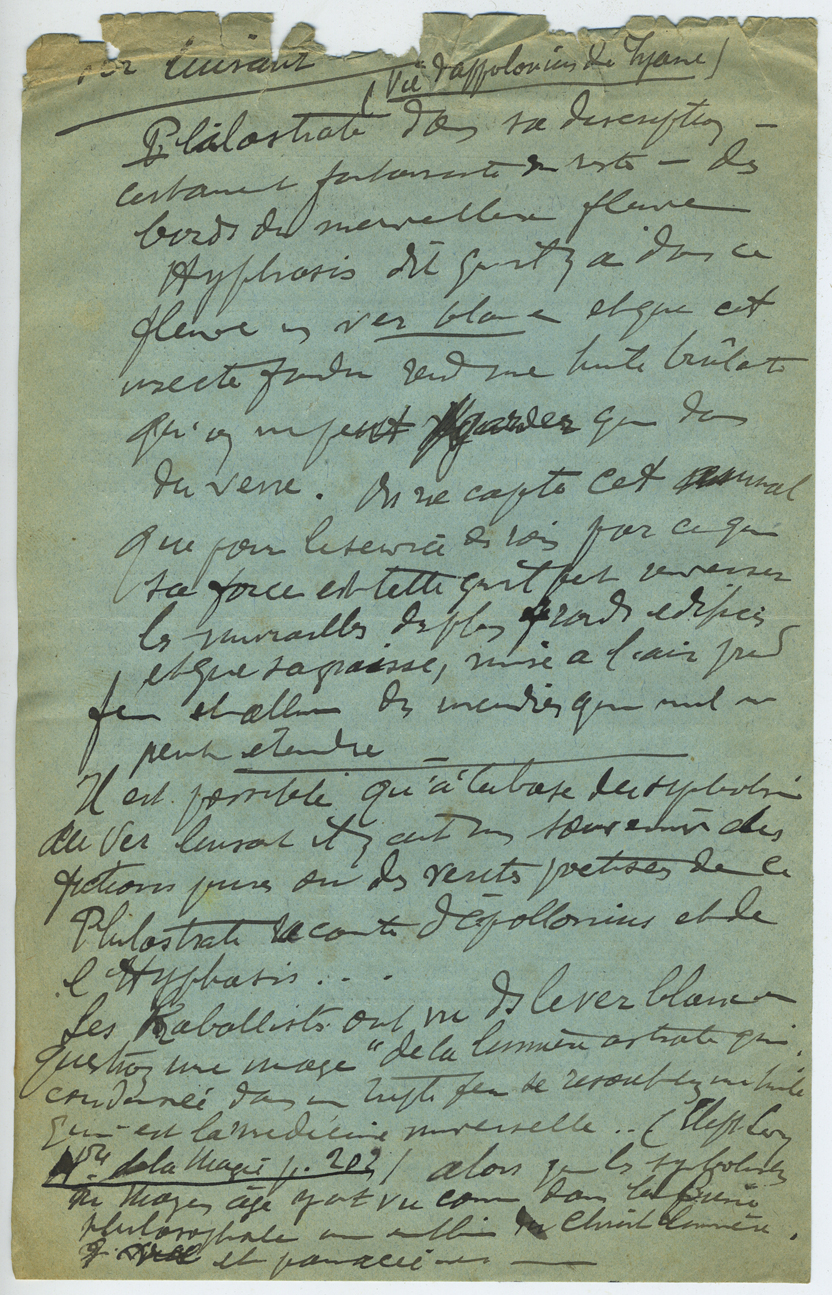 Ver luisant
(Vie d'appolonius de Tyane)
Philostrate dans sa description –
certainement fantaisiste du reste – des
bords du merveilleux fleuve
Hyphasis dit qu'il y a dans ce
fleuve un ver blanc et que cet
insecte fondu rend une huile brûlante
qu'on ne peut garder que dans
du verre. On ne capte cet animal
que pour le service des rois parce que
sa force est telle qu'il peut renverser
les murailles des plus grands edifices
et que sa graisse, mise a l'air prend
feu et allume des incendies que nul ne
peut eteindre
Il est possible qu'à la base du symbolisme
du Ver luisant il y ait un souvenir des
fictions pures ou des verités poetisées de ce
Philostrate raconte d'Apollonius et de
l'Hyphasis . . .
Les Kaballistes ont vu ds le ver blanc en
question une image "de la lumière astrale qui
condensée dans un triple feu se resout en une huile
qui est la medecine universelle .. (Eliph. Levy
Hre de la Magie p. 202) alors que les symbolistes
du Moyen âge y ont vu comme dans la pierre
philosophale un emblème du Christ Lumière,
et panacée